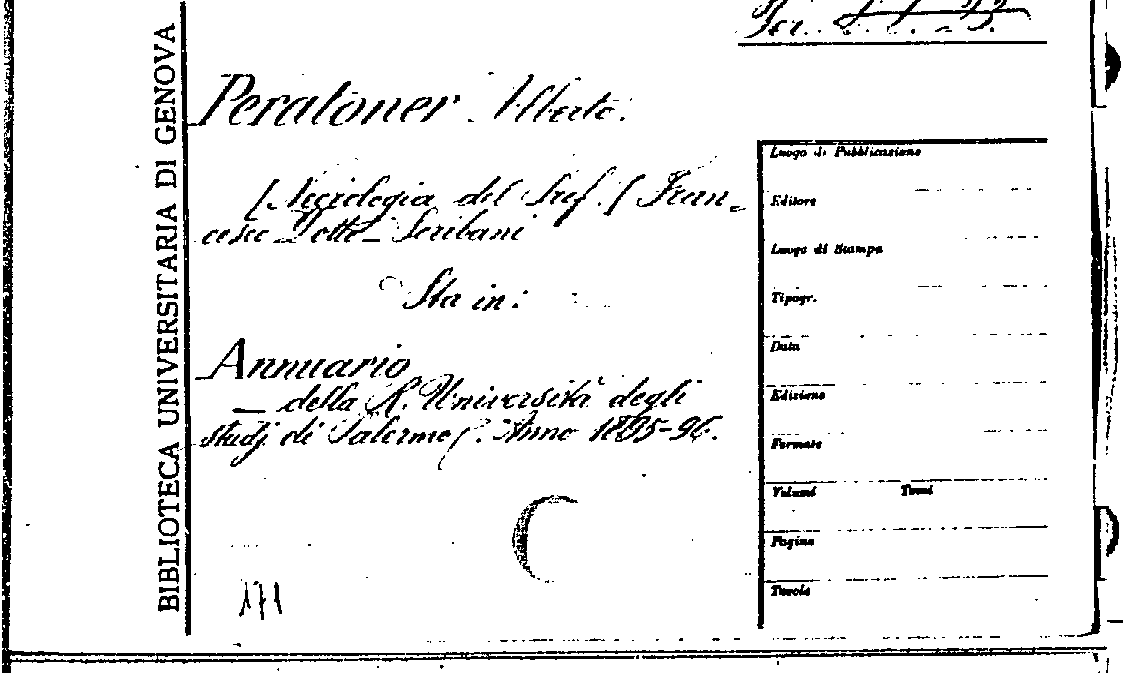 BIBLIOTECA UNIVERSITARIA DI GENOVA
Peratoner Alberto.
[Necrologia del Prof.] Fran-
cesco Dotto-Scribani
Sta in:
Annuario
della R. Università degli
studj di Palermo. Anno 1895-96.
171
Luogo di Pubblicazione
Editore
Luogo di Stampa
Tipogr.
Data
Edizione
Formato
Volumi Tomi
Pagine
Tavole